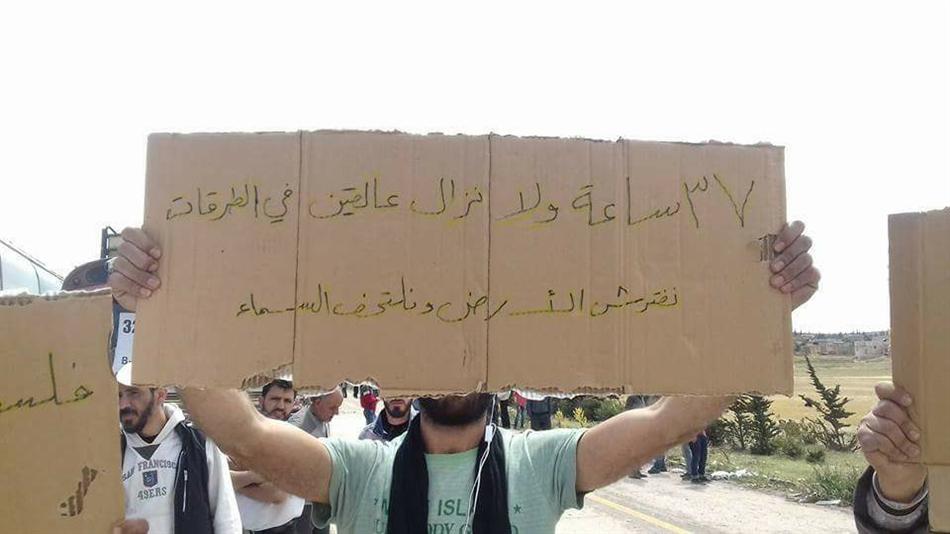 ٣٧ ساعة ولا نزال عالقين في الطرقات
نفترش الأرض ونلتحف السماء
32
B-
SAN FRANCISCO
49ERS
ISL
BODY